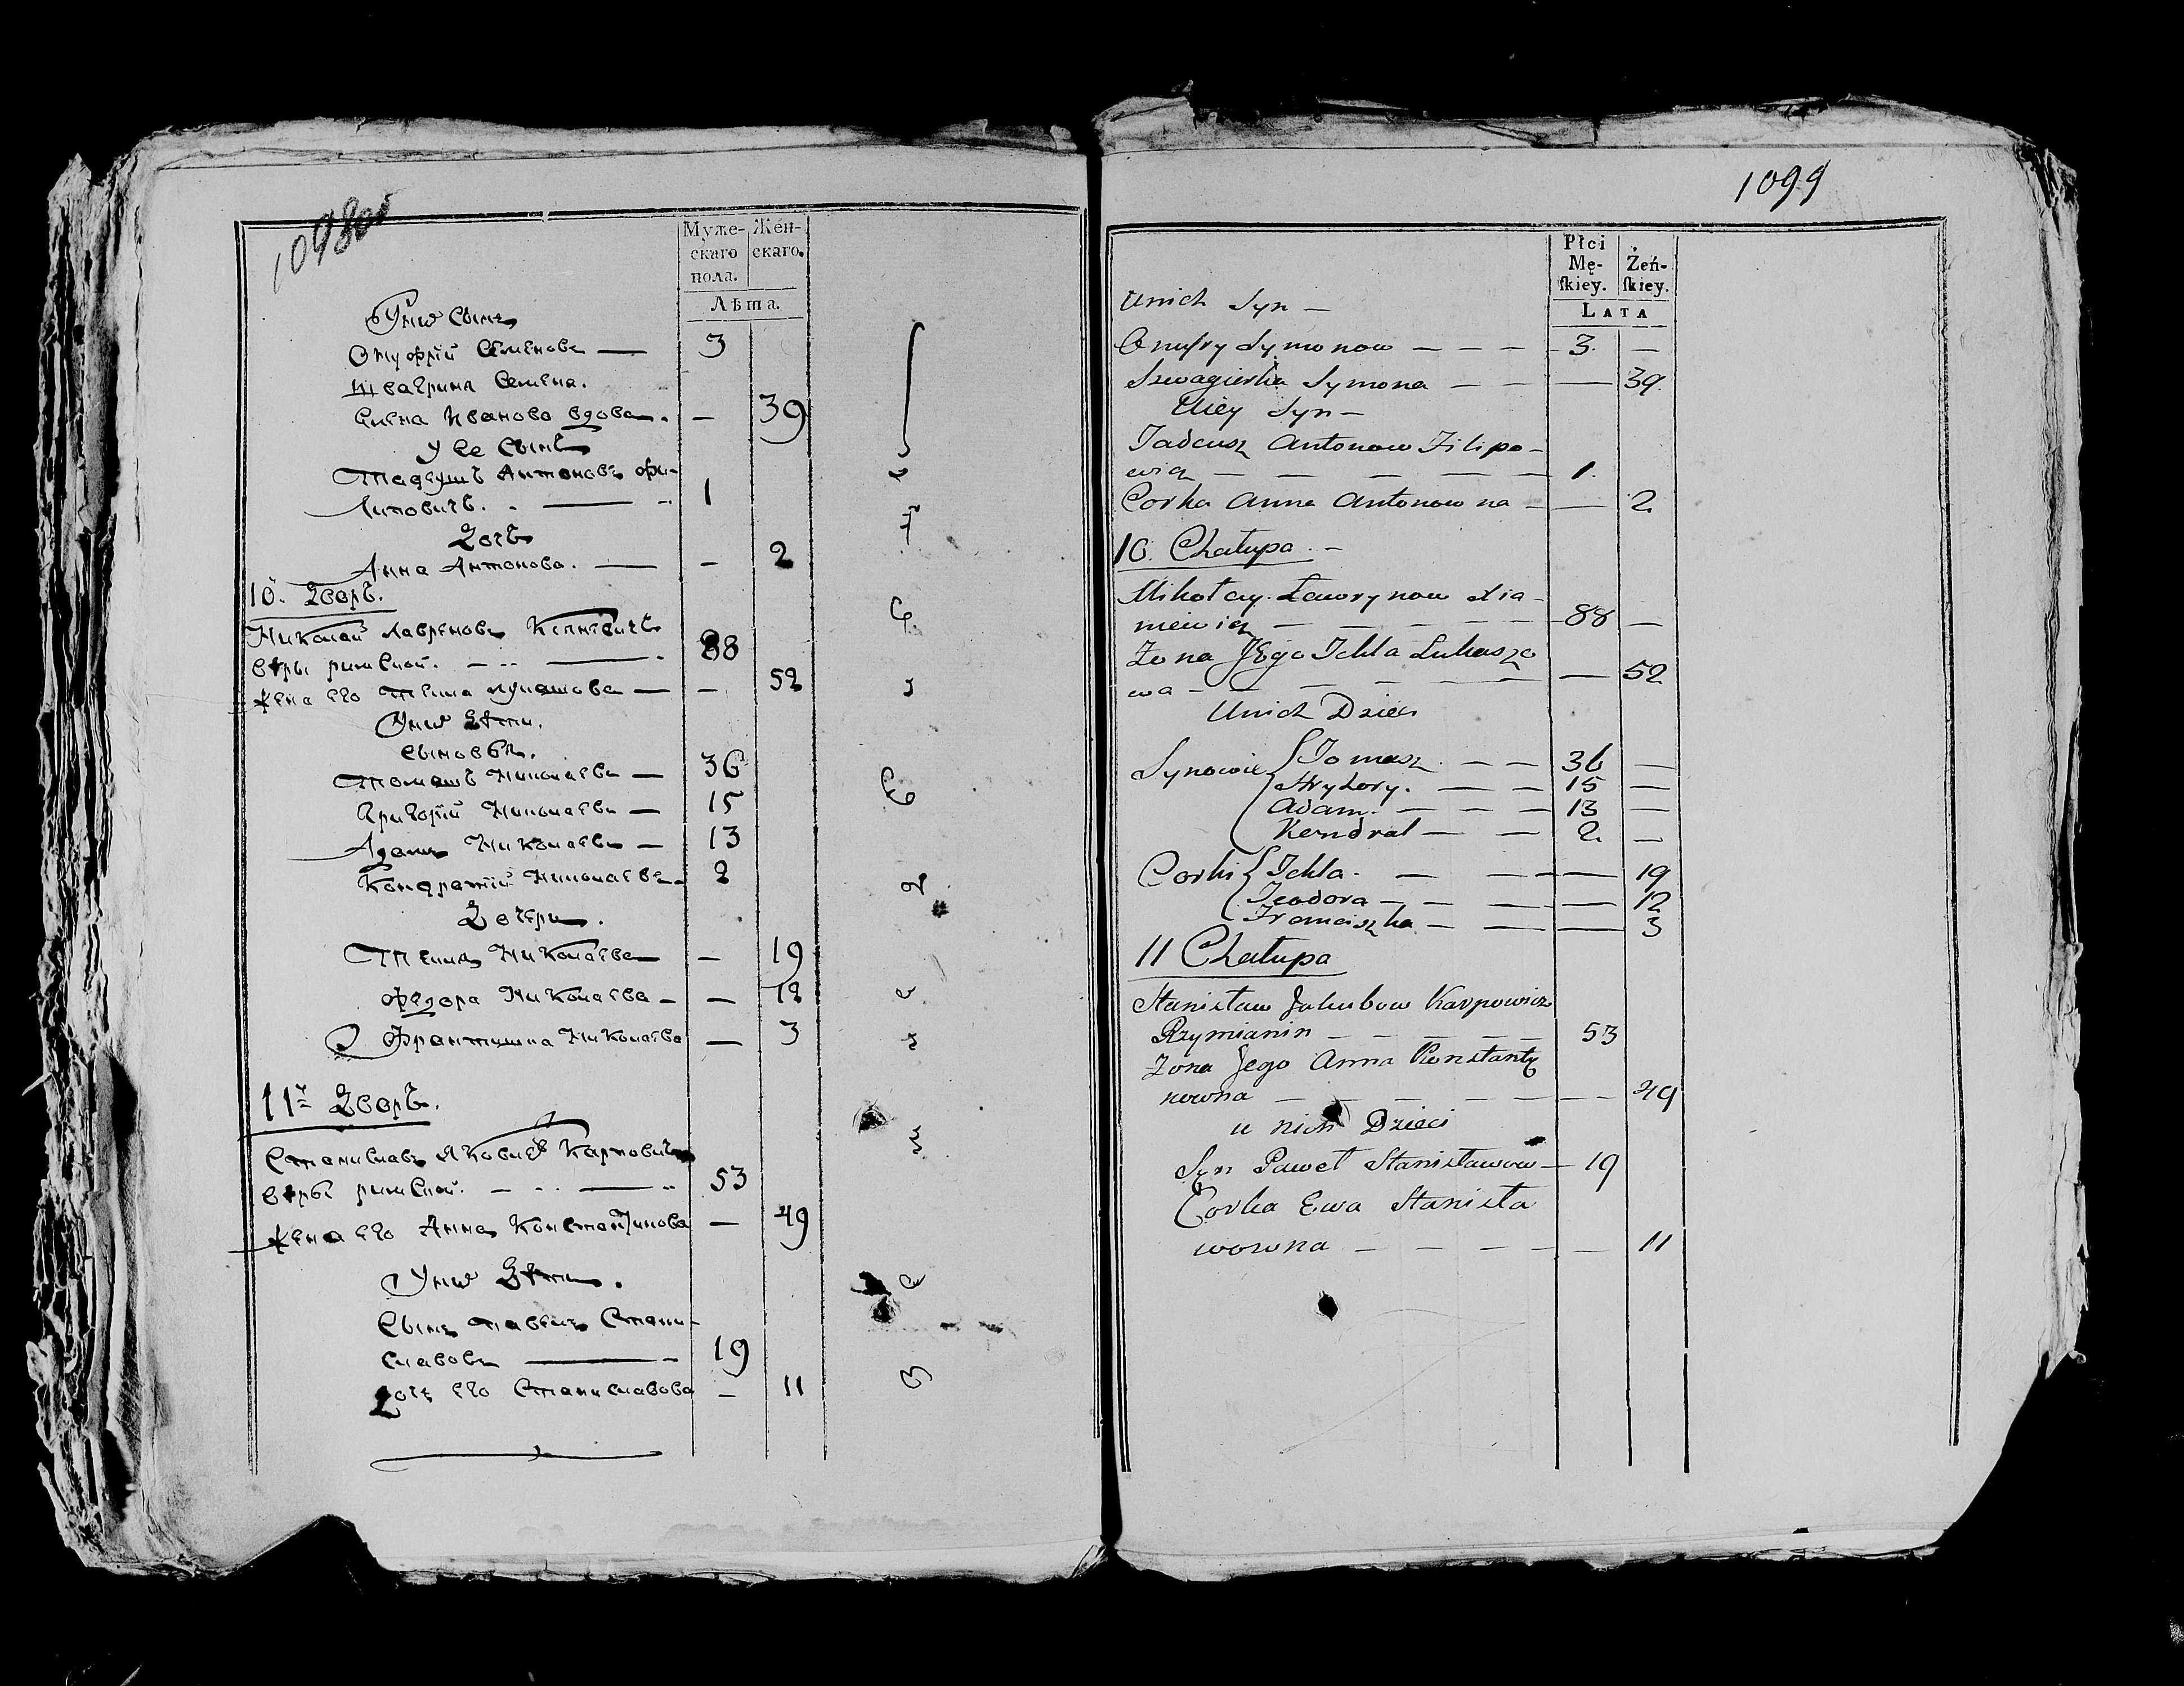 1098об
Муже- Жен-
скаго скаго.
пола.
Лѣта.
У нихъ Сынъ
Онуфрій Семѣновъ — 3
Швагрина Семѣна.
Елена Иванова вдова. — 39
У ее Сынъ
Тадеушъ Антоновъ Фи-
липовичъ. — 1
Дочь
Анна Антонова. — — 2
10й Дворъ.
Николай Лавреновъ
вѣры римской. — 88
жена его Текла Лукашова — — 52
У нихъ Дѣти.
сыновья.
Томашъ Николаевъ — 36
Григорій Николаевъ — 15
Адамъ Николаевъ — 13
Кондратій Николаевъ — 2
Дочери.
Текла Николаева — — 19
Федора Николаева — — 12
Францишка Николаева — 3
11й Дворъ.
Станиславъ Карповичъ
вѣры римской. — 53
жена его Анна Константинова — 49
У нихъ Дѣти.
Сынъ Павелъ Стани-
славовъ — 19
Дочь его Станиславова — 11
1099
Płci
Mę- Żeń-
skiey. skiey.
LATA
Unich Syn —
Onufry Symonow — — — 3. —
Szwagierka Symona — — — 39.
Uiey Syn —
Tadeusz Antonow Filipo-
wicz — — — — — 1.
Corka Anna Antonowna — — 2
10. Chałupa. —
Mikołay Ławrynow Kia-
niewicz — — — — — 88 —
Żona JEgo Tekla Łukaszo
wa — — — — — — 52
Unich Dzieci
Synowie Tomasz. — — 36 —
Hryhory. — — 15 —
Adam. — — — 13 —
Kendrat — — 2. —
Corki Tekla. — — — 19
Teodora — — — — 12
Franciszka — — — 3
11 Chałupa
Stanisław Jakubow Karpowicz
Rzymianin — — — — — 53
Żona Jego Anna Konstanty
nowna — — — — — — 49
u nich Dzieci
Syn Paweł Stanisławow — 19
Corka Ewa Stanisła
wowna — — — — — 11